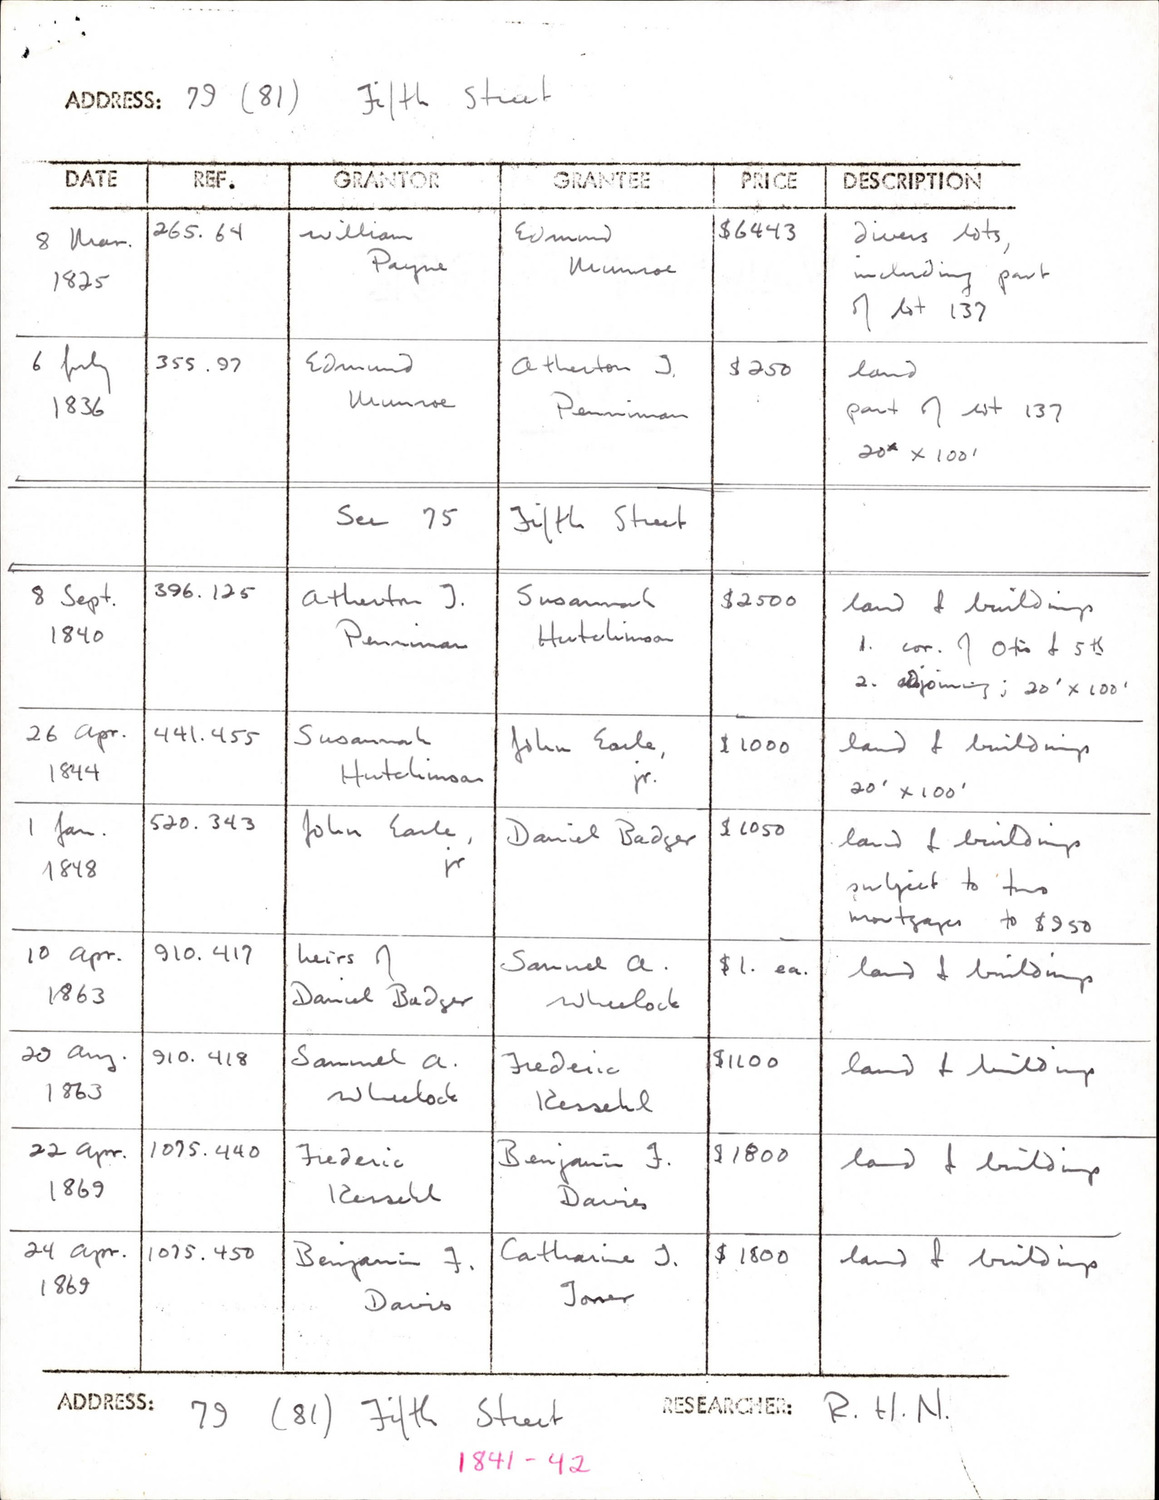 ADDRESS: 79 (81) Fifth Street
DATE REF. GRANTOR GRANTEE PRICE DESCRIPTION
8 Mar. 1825 265.64 William Payne Edmund Munroe $6443 divers lots, including part of lot 137
6 July 1836 355.97 Edmund Munroe Atherton T. Penniman $250 land part of lot 137 20' x 100'
See 75 Fifth Street
8 Sept. 1840 396.125 Atherton T. Penniman Susannah Hutchinson $2500 land & buildings 1. cor. of Otis & 5th 2. adjoining; 20' x 100'
26 Apr. 1844 441.455 Susannah Hutchinson John Earle, jr. $1000 land & buildings 20' x 100'
1 Jan. 1848 520.343 John Earle, jr Daniel Badger $1050 land & buildings subject to two mortgages to $950
10 Apr. 1863 910.417 heirs of Daniel Badger Samuel A. Wheelock $1. ea. land & buildings
20 Aug. 1863 910.418 Samuel A. Wheelock Frederic $1100 land & buildings
22 Apr. 1869 1075.440 Frederic Benjamin F. Davies $1800 land & buildings
24 Apr. 1869 1075.450 Benjamin F. Davis Catharine J. $1800 land & buildings
ADDRESS: 79 (81) Fifth Street RESEARCHER: R.H.N.
1841-42